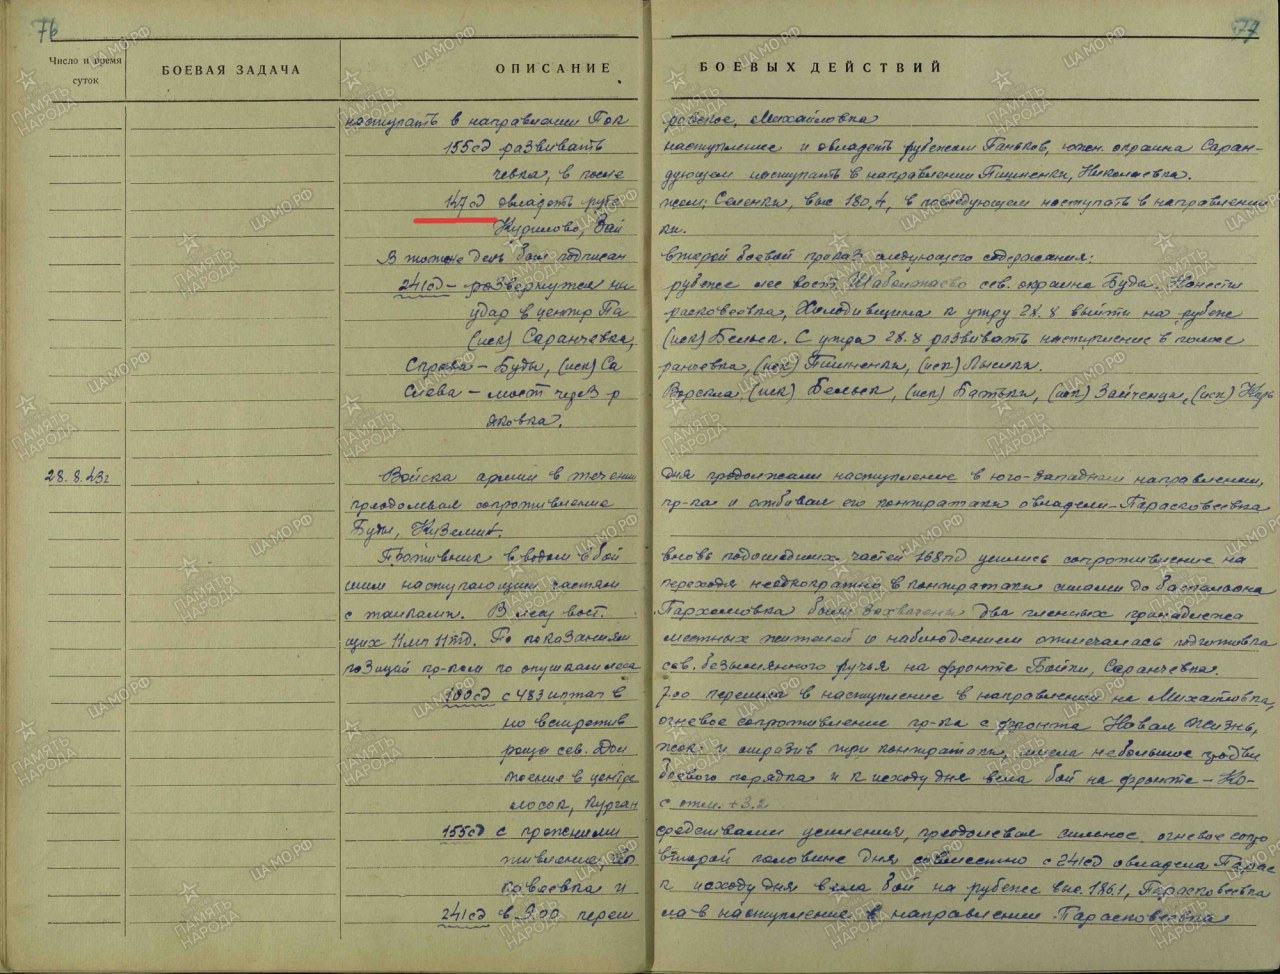 76
77
Число и время суток
БОЕВАЯ ЗАДАЧА
ОПИСАНИЕ БОЕВЫХ ДЕЙСТВИЙ
наступать в направлении Пок ровское, Михайловка
155сд развивать наступление и овладеть рубежом Паньков, южн. окраина Саран-
чевка, в после дующем наступать в направлении Пишненки, Николаевка.
147сд овладеть рубе жом: Селенки, выс 180,4, в последующем наступать в направлении
Курилово, Зай ки.
В тот же день был подписан второй боевой приказ следующего содержания:
241сд – развернутся на рубеже лес вост. сев. окраина Буды. Нанести
удар в центр Па расковеевка, Холодивщина к утру 28.8 выйти на рубеж
(иск) Саранчевка, (иск) Бельск. С утра 28.8 развивать наступление в полосе
Справа – Буды, (иск) Са ранчевка, (иск) Пишненки, (иск) Лысики.
Слева – мост через р Ворскла, (иск) Бельск, (иск) Батьки, (иск) Зайченцы, (иск) Жер
яковка.
28.8.43г Войска армии в течении дня продолжали наступление в юго-западном направлении,
преодолевая сопротивление пр-ка и отбивая его контратаки овладели – Парасковеевка
Буды, Куземин.
Противник вводом в бой вновь подошедших частей 168пд усились сопротивление на
шим наступающим частям переходя неоднократно в контратаки силами до батальона
с танками. В лесу вост. Пархомовка были захвачены два пленных гренадерса
щих 11мп 11тд. По показаниям местных жителей и наблюдением отмечалась подготовка
позиций пр-ком по опушкам леса сев. безымянного ручья на фронте Бойчи, Саранчевка.
100сд с 483 иптап в 7.00 перешла в наступление в направлении на Михайловка,
но встретив огневое сопротивление пр-ка с фронта Новая Жизнь,
роща сев. и отразив три контратаки, имела небольшое продви
жение в центре боевого порядка и к исходу дня вела бой на фронте – Ко-
лосок, курган с отм. +3.2
155сд с прежними средствами усиления, преодолевая сильное огневое сопро
тивление, во второй половине дня совместно с 241сд овладела Парас
ковеевка и к исходу дня вела бой на рубеже выс. 186.1, Парасковеевка
241сд в 9.00 переш ла в наступление в направлении Парасковеевка
ПАМЯТЬ НАРОДА
ЦАМО.РФ